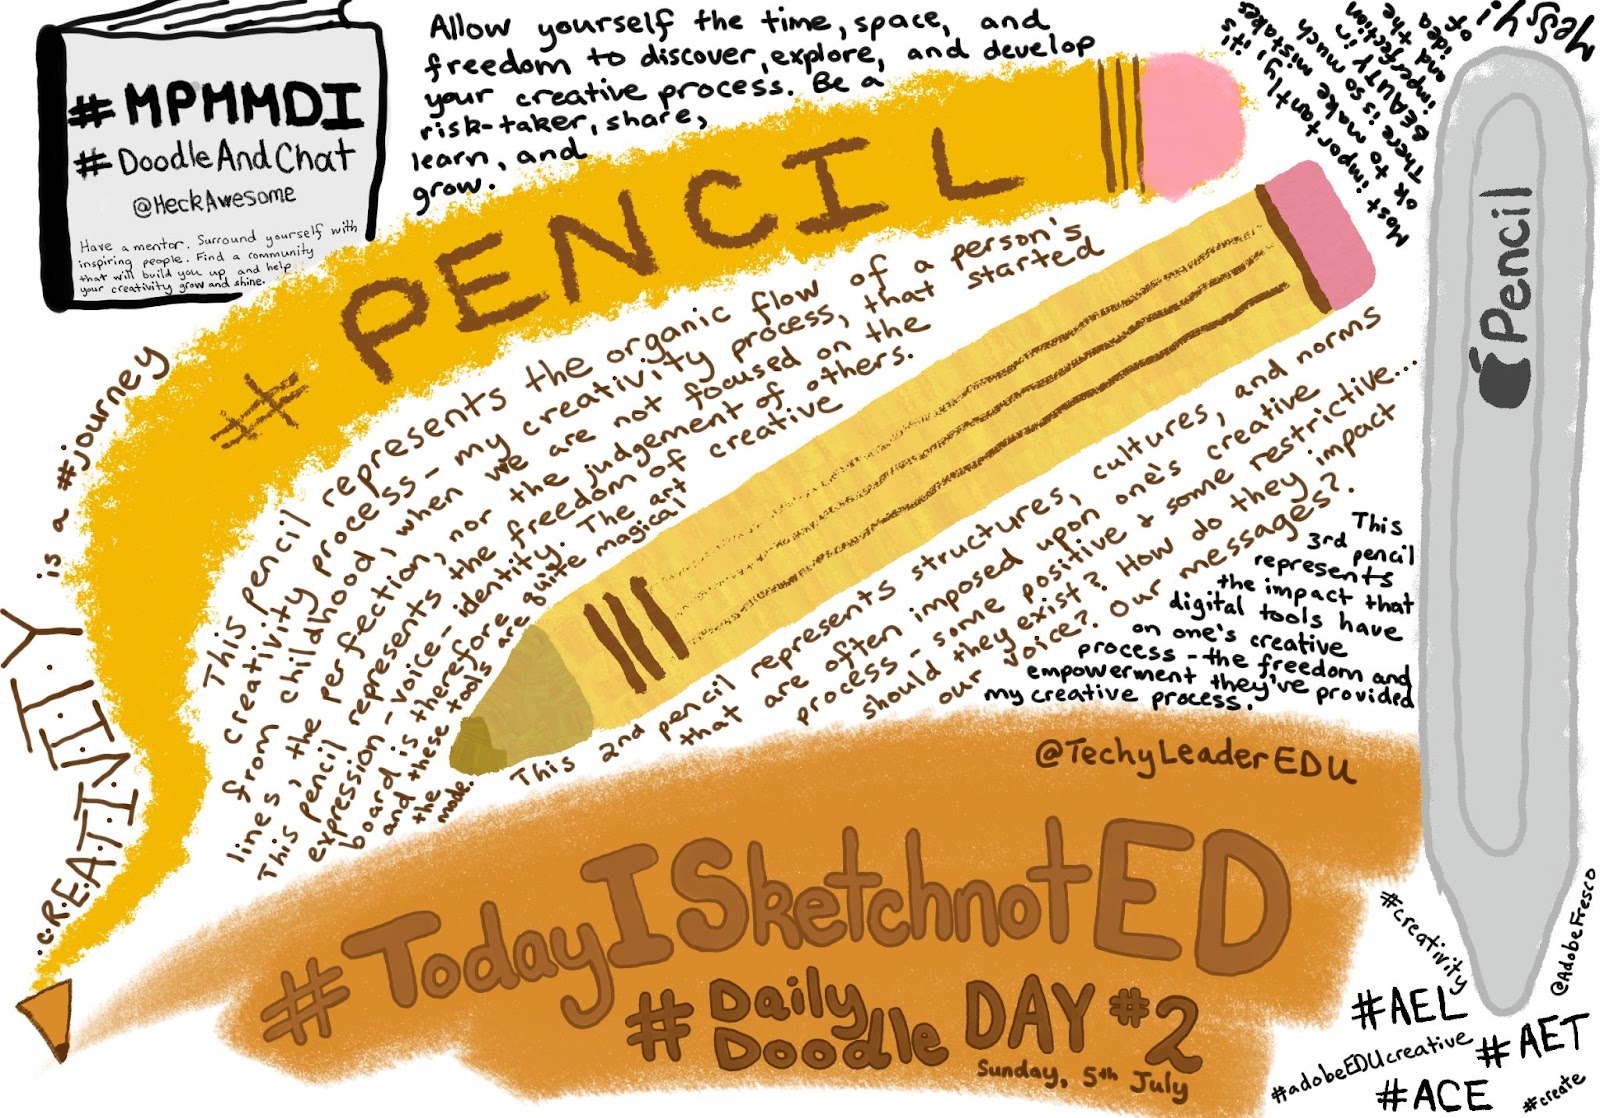 #MPMMDI
#DoodleAndChat
@HeckAwesome
Have a mentor. Surround yourself with
inspiring people. Find a community
that will build you up and help
your creativity grow and shine.
Allow yourself the time, space, and
freedom to discover, explore, and develop
your creative process. Be a
risk-taker, share,
learn, and
grow.
Most importantly, it's
ok to make mistakes
There is so much
BEAUTY in
imperfection
and the
idea
of
Messy!
#PENCIL
C.R.E.A.T.I.V.I.T.Y is a #journey
This pencil represents the organic flow of a person's
creativity process - my creativity process, that started
from childhood, when we are not focused on the
lines, the perfection, nor the judgement of others.
This pencil represents the freedom of creative
expression - voice - identity. The art
board is therefore quite magical
and these tools are
the
mode.
This 2nd pencil represents structures, cultures, and norms
that are often imposed upon one's creative
process - some positive & some restrictive...
should they exist? How do they impact
our voice? Our messages?
Pencil
This
3rd pencil
represents
the impact that
digital tools have
on one's creative
process - the freedom and
empowerment they've provided
my creative process.
@TechyLeaderEDU
#TodayISketchnotED
#Daily
Doodle
DAY #2
Sunday, 5th July
#creativity
@AdobeFresco
#AEL
#adobeEDUcreative
#AET
#ACE
#create